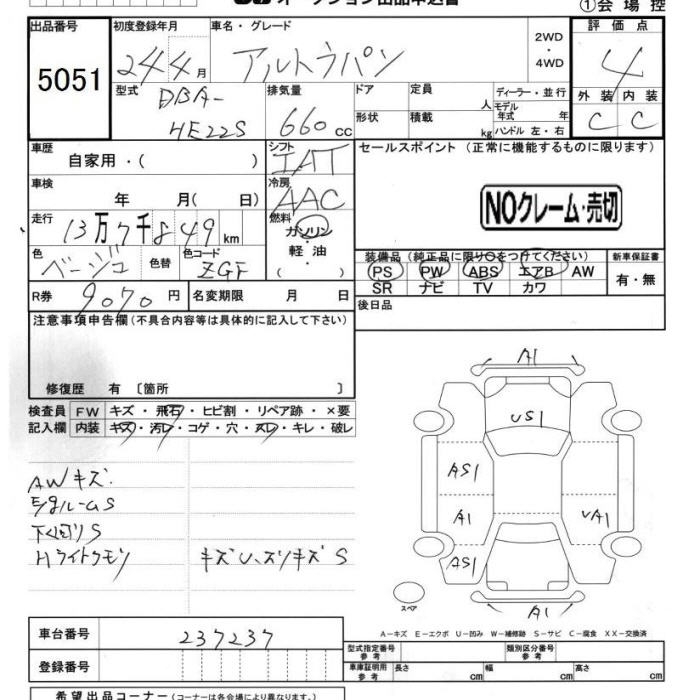 オークション出品申込書
①会場控
出品番号 初度登録年月 車名・グレード 評価点
5051 24 4月 アルトラパン 2WD ・ 4WD 4
型式 DBA- HE22S 排気量 660 cc ドア 定員 人 ディーラー・並行 外装 内装
形状 積載 kg モデル年式 年 ハンドル 左・右 C C
車歴 自家用・( ) シフト IAT セールスポイント(正常に機能するものに限ります)
車検 年 月( 日) 冷房 AAC
NOクレーム・売切
走行 13万7千849km 燃料 ガソリン・軽油 ( )
色 ベージュ 色替 色コード ZGF
装備品(純正品に限り○をつけてください) 新車保証書
PS PW ABS エアB AW 有・無
SR ナビ TV カワ
R券 9070円 名変期限 月 日 後日品
注意事項申告欄(不具合内容等は具体的に記入して下さい)
修復歴 有〔箇所 〕
検査員 FW キズ・飛石・ヒビ割・リペア跡・×要
記入欄 内装 キズ・汚レ・コゲ・穴・スレ・キレ・破レ
AWキズ.
下廻りS
Hライトクモリ
キズU、スリキズS
A1
US1
AS1
A1
UA1
AS1
A1
スペア
A-キズ E-エクボ U-凹み W-補修跡 S-サビ C-腐食 XX-交換済
車台番号 237237 型式指定番号 参考 類別区分番号 参考
登録番号 車庫証明用 参考 長さ cm 幅 cm 高さ cm
希望出品コーナー(コーナーは各会場により異なります。)